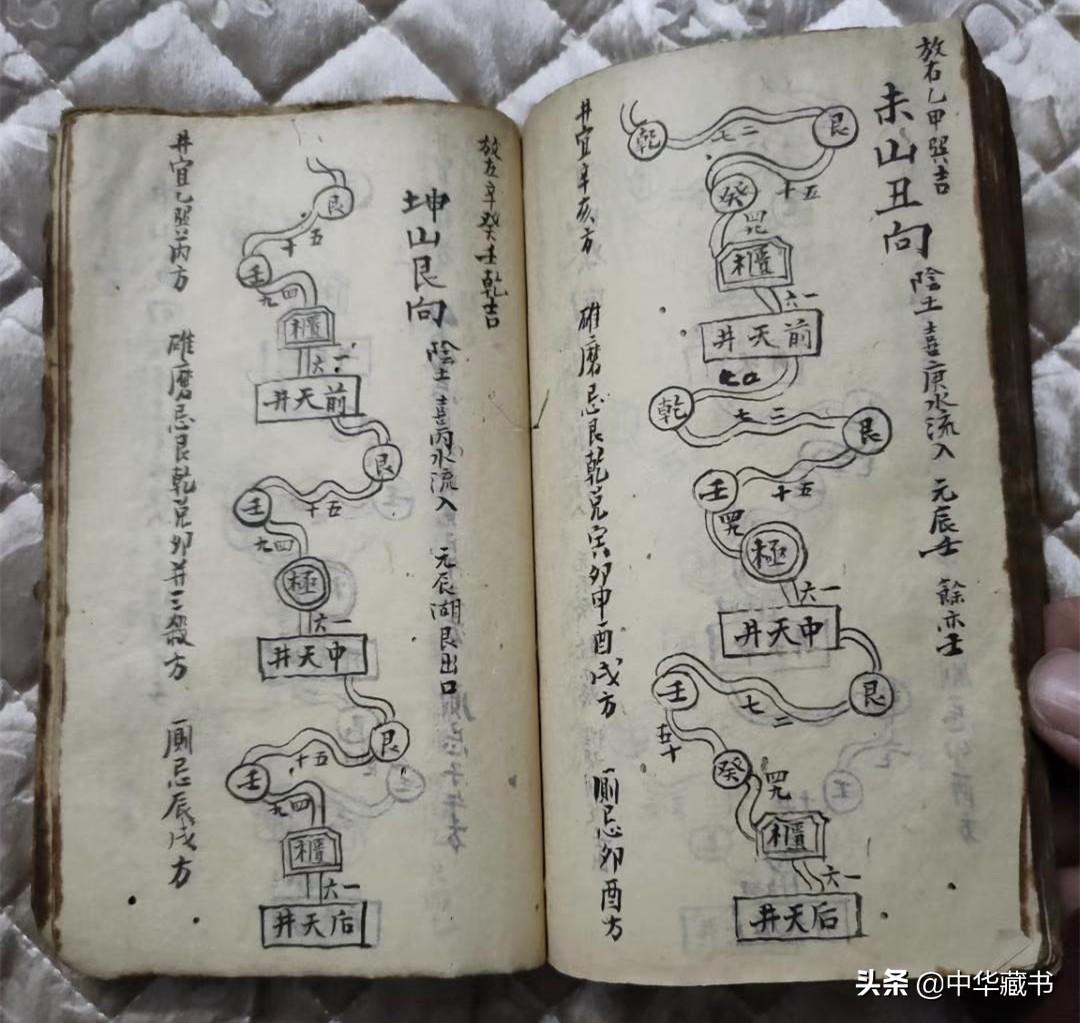 放右乙甲巽吉
未山丑向
陰土 喜庚水流入 元辰壬 餘亦壬
乾
二七
艮
五十
癸
四九
櫃
一六
前天井
乾
二七
艮
五十
壬
四九
極
一六
中天井
艮
二七
壬
五十
癸
四九
櫃
一六
后天井
井宜辛亥方 碓磨忌艮乾兌寅卯申酉戌方 厠忌卯酉方
放左辛癸壬乾吉
坤山艮向
陰土 喜丙水流入 元辰湖艮出口
艮
五十
壬
四九
櫃
一六
前天井
艮
五十
壬
四九
極
一六
中天井
艮
五十
壬
四九
櫃
一六
后天井
井宜乙巽丙方 碓磨忌艮乾兌卯并三殺方 厠忌辰戌方
头条 @中华藏书